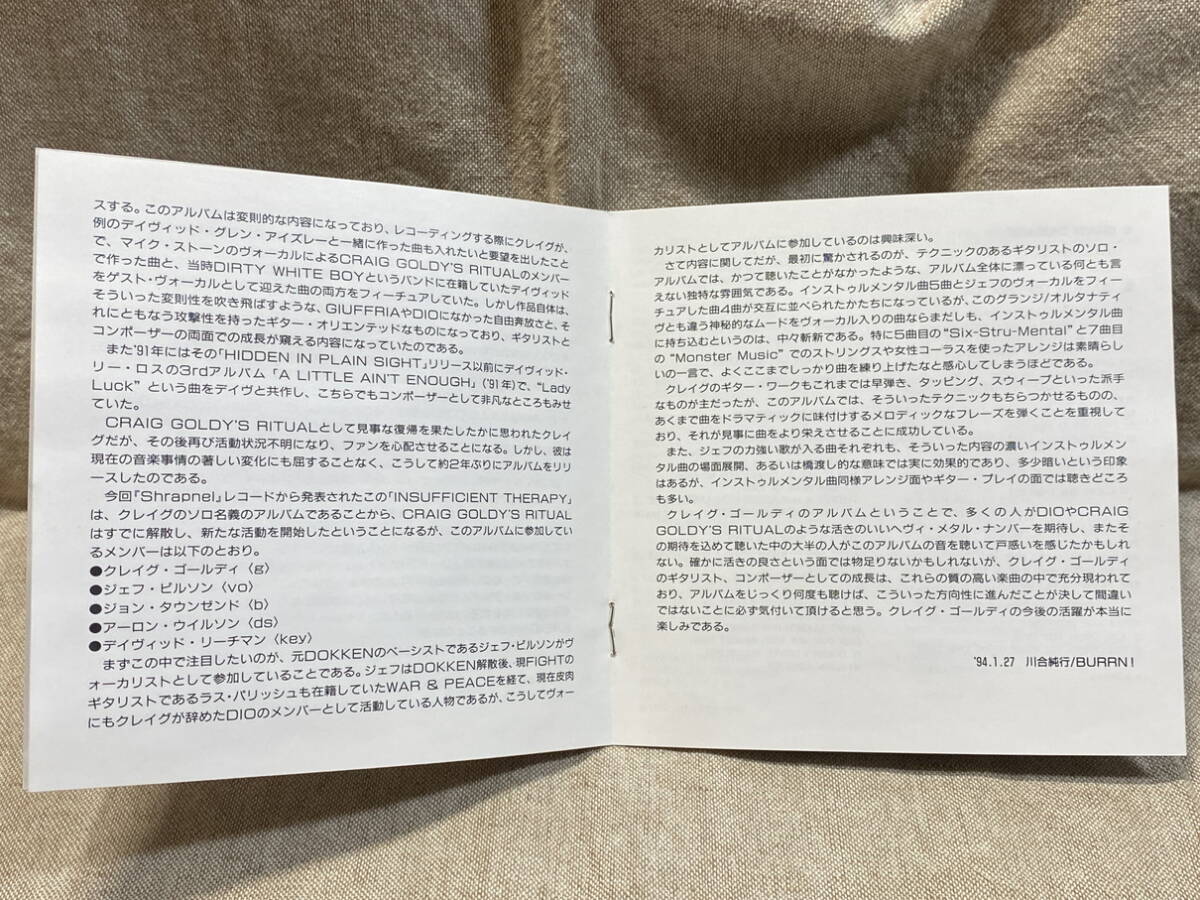 スする。このアルバムは変則的な内容になっており、レコーディングする際にクレイグが、
例のデイヴィッド・グレン・アイズレーと一緒に作った曲も入れたいと要望を出したこと
で、マイク・ストーンのヴォーカルによるCRAIG GOLDY'S RITUALのメンバー
で作った曲と、当時DIRTY WHITE BOYというバンドに在籍していたデイヴィッド
をゲスト・ヴォーカルとして迎えた曲の両方をフィーチュアしていた。しかし作品自体は、
そういった変則性を吹き飛ばすような、GIUFFRIAやDIOになかった自由奔放さと、そ
れにともなう攻撃性を持ったギター・オリエンテッドなものになっており、ギタリストと
コンポーザーの両面での成長が窺える内容になっていたのである。
また'91年にはその「HIDDEN IN PLAIN SIGHT」リリース以前にデイヴィッド・
リー・ロスの3rdアルバム「A LITTLE AIN'T ENOUGH」('91年)で、“Lady
Luck” という曲をデイヴと共作し、こちらでもコンポーザーとして非凡なところもみせ
ていた。
CRAIG GOLDY'S RITUALとして見事な復帰を果たしたかに思われたクレイ
グだが、その後再び活動状況不明になり、ファンを心配させることになる。しかし、彼は
現在の音楽事情の著しい変化にも屈することなく、こうして約2年ぶりにアルバムをリリ
ースしたのである。
今回「Shrapnel」レコードから発表されたこの「INSUFFICIENT THERAPY」
は、クレイグのソロ名義のアルバムであることから、CRAIG GOLDY'S RITUAL
はすでに解散し、新たな活動を開始したということになるが、このアルバムに参加してい
るメンバーは以下のとおり。
●クレイグ・ゴールディ〈g〉
●ジェフ・ピルソン〈vo〉
●ジョン・タウンゼンド〈b〉
●アーロン・ウイルソン〈ds〉
●デイヴィッド・リーチマン〈key〉
まずこの中で注目したいのが、元DOKKENのベーシストであるジェフ・ピルソンがヴ
ォーカリストとして参加していることである。ジェフはDOKKEN解散後、現FIGHTの
ギタリストであるラス・パリッシュも在籍していたWAR & PEACEを経て、現在皮肉
にもクレイグが辞めたDIOのメンバーとして活動している人物であるが、こうしてヴォー
カリストとしてアルバムに参加しているのは興味深い。
さて内容に関してだが、最初に驚かされるのが、テクニックのあるギタリストのソロ・
アルバムでは、かつて聴いたことがなかったような、アルバム全体に漂っている何とも言
えない独特な雰囲気である。インストゥルメンタル曲5曲とジェフのヴォーカルをフィー
チュアした曲4曲が交互に並べられたかたちになっているが、このグランジ/オルタナティ
ヴとも違う神秘的なムードをヴォーカル入りの曲ならまだしも、インストゥルメンタル曲
に持ち込むというのは、中々斬新である。特に5曲目の “Six-Stru-Mental” と7曲目
の “Monster Music” でのストリングスや女性コーラスを使ったアレンジは素晴らし
いの一言で、よくここまでしっかり曲を練り上げたなと感心してしまうほどである。
クレイグのギター・ワークもこれまでは早弾き、タッピング、スウィープといった派手
なものが主だったが、このアルバムでは、そういったテクニックもちらつかせるものの、
あくまで曲をドラマティックに味付けするメロディックなフレーズを弾くことを重視して
おり、それが見事に曲をより栄えさせることに成功している。
また、ジェフの力強い歌が入る曲それぞれも、そういった内容の濃いインストゥルメン
タル曲の場面展開、あるいは橋渡し的な意味では実に効果的であり、多少暗いという印象
はあるが、インストゥルメンタル曲同様アレンジ面やギター・プレイの面では聴きどころ
も多い。
クレイグ・ゴールディのアルバムということで、多くの人がDIOやCRAIG
GOLDY'S RITUALのような活きのいいヘヴィ・メタル・ナンバーを期待し、またそ
の期待を込めて聴いた中の大半の人がこのアルバムの音を聴いて戸惑いを感じたかもしれ
ない。確かに活きの良さという面では物足りないかもしれないが、クレイグ・ゴールディ
のギタリスト、コンポーザーとしての成長は、これらの質の高い楽曲の中で充分現われて
おり、アルバムをじっくり何度も聴けば、こういった方向性に進んだことが決して間違い
ではないことに必ず気付いて頂けると思う。クレイグ・ゴールディの今後の活躍が本当に
楽しみである。
'94.1.27 川合純行/BURRN!